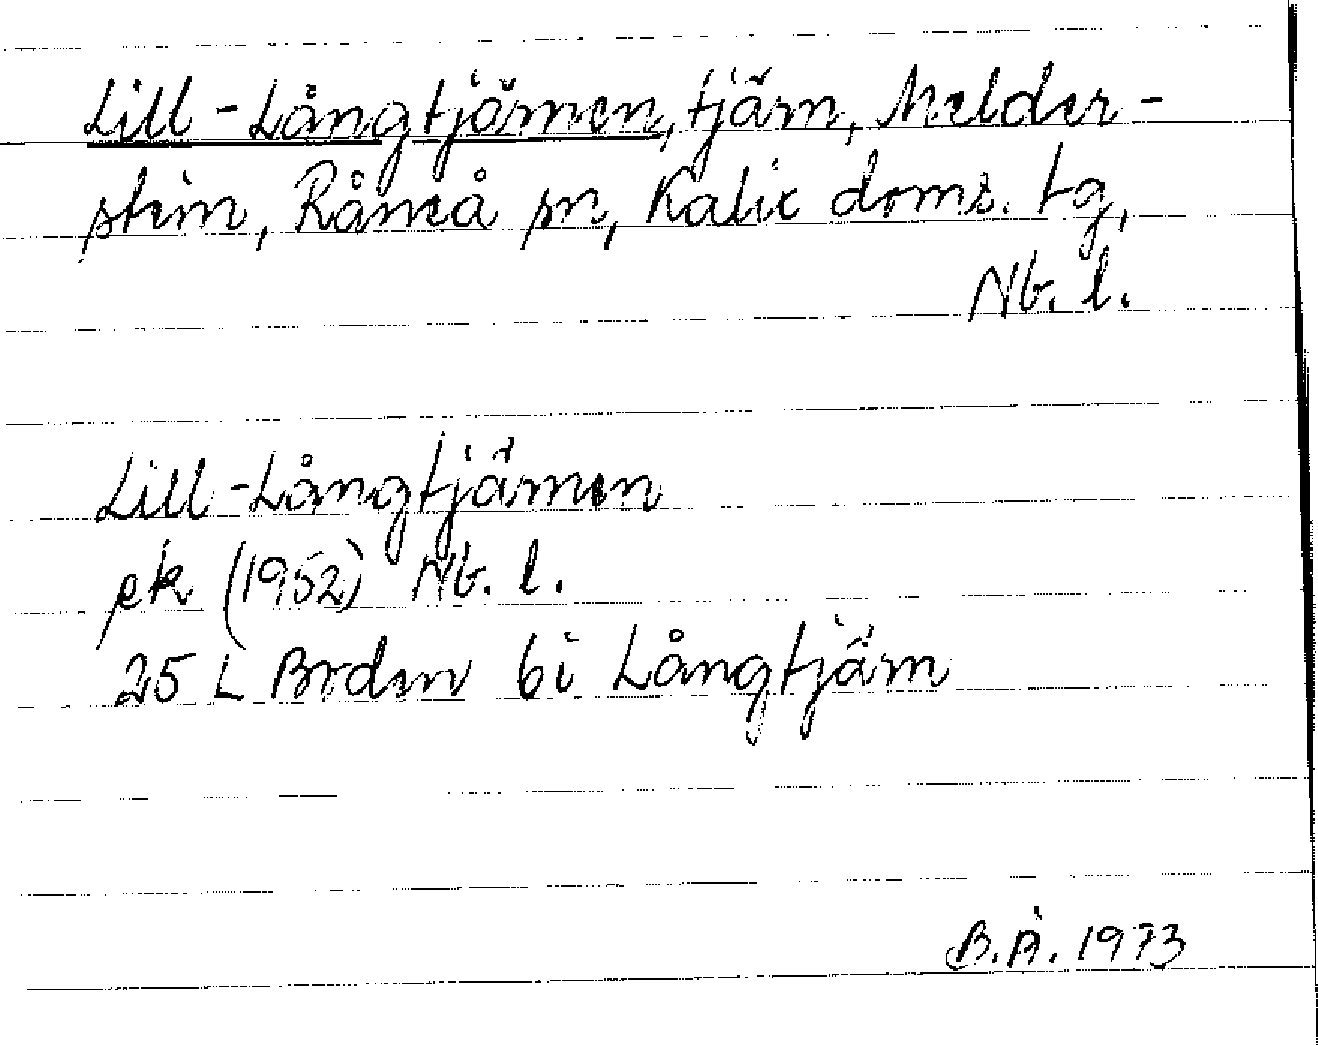 Lill-Långtjärnen, tjärn, Melder-
stein, Råneå sn, Kalix doms. tg,
Nb. l.
Lill-Långtjärnen
ek (1952) Nb. l.
25 L Brden bi Långtjärn
B.Å. 1973